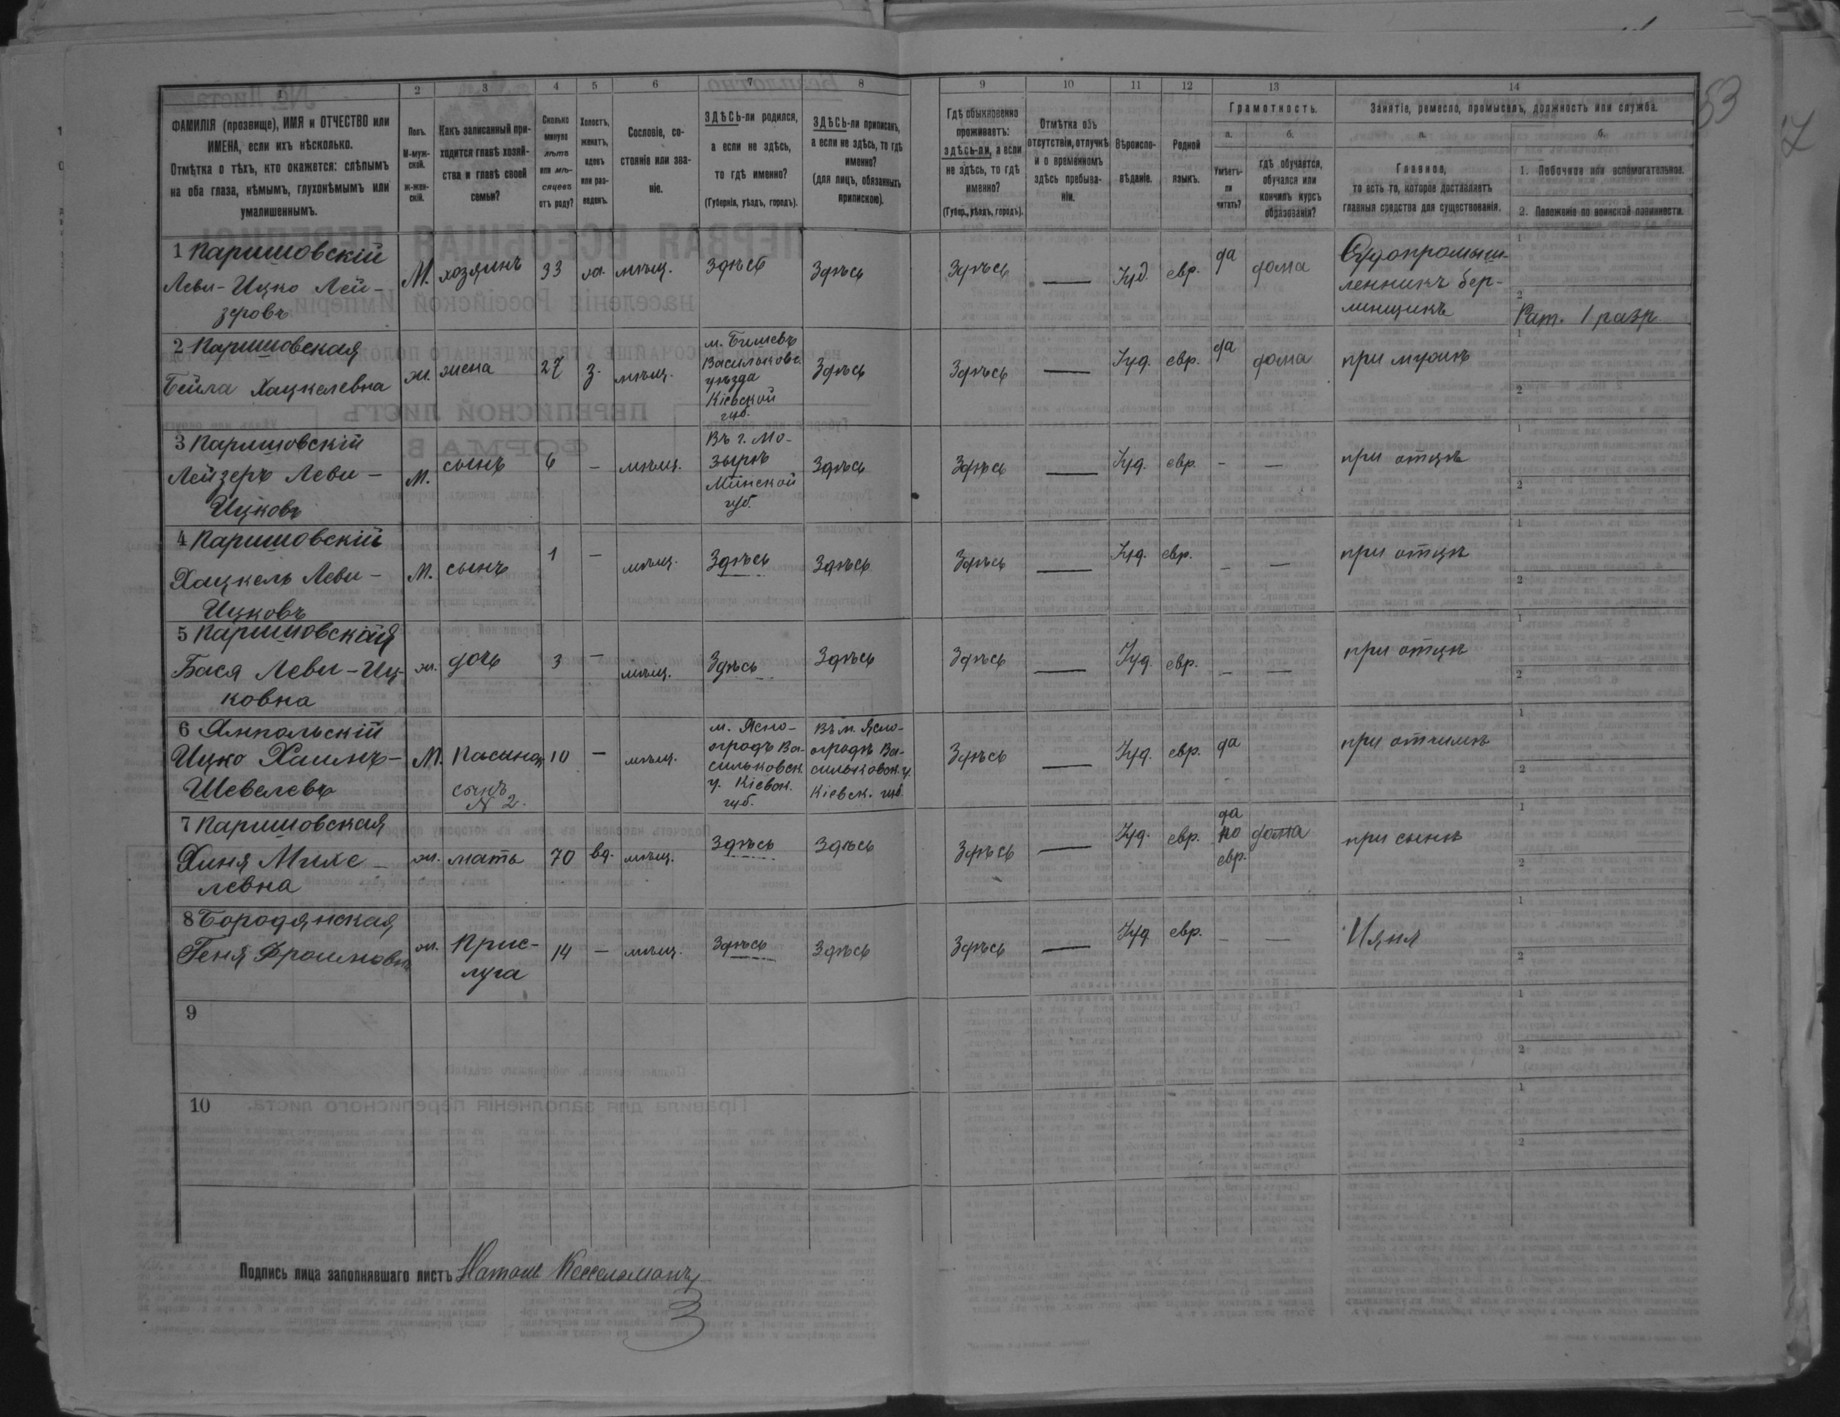 53
7
1 2 3 4 5 6 7 8 9 10 11 12 13 14
ФАМИЛІЯ (прозвище), ИМЯ и ОТЧЕСТВО или ИМЕНА, если ихъ нѣсколько.
Отмѣтка о тѣхъ, кто окажется: слѣпымъ на оба глаза, нѣмымъ, глухонѣмымъ или умалишеннымъ.
Полъ.
М-мужской.
ж-женскій.
Какъ записанный приходится главѣ хозяйства и главѣ своей семьи?
Сколько минуло лѣтъ или мѣсяцевъ отъ роду?
Холостъ, женатъ, вдовъ или разведенъ.
Сословіе, состояніе или званіе.
ЗДѢСЬ-ли родился, а если не здѣсь, то гдѣ именно?
(Губернія, уѣздъ, городъ).
ЗДѢСЬ-ли приписанъ, а если не здѣсь, то гдѣ именно?
(для лицъ, обязанныхъ припискою).
Гдѣ обыкновенно проживаетъ: здѣсь-ли, а если не здѣсь, то гдѣ именно?
(Губер., уѣздъ, городъ).
Отмѣтка объ отсутствіи, отлучкѣ и о временномъ здѣсь пребываніи.
Вѣроисповѣданіе.
Родной языкъ.
Грамотность.
а.
Умѣетъ-ли читать?
б.
гдѣ обучается, обучался или кончилъ курсъ образованія?
Занятіе, ремесло, промыселъ, должность или служба.
а.
Главное,
то есть то, которое доставляетъ главныя средства для существованія.
б.
1. Побочное или вспомогательное.
2. Положеніе по воинской повинности.
1 Паришовскій
Леви-Ицко Лей-
зеровъ
М. хозяинъ 33 жен. мѣщ. Здѣсь Здѣсь Здѣсь — Іуд. евр. да дома
Судопромыш-
ленникъ бер-
линщикъ
Рат. 1 разр
2 Паришовская
Бейла Хацкелевна
ж. жена 27 з. мѣщ.
м. Бышевъ
Васильковс.
уѣзда
Кіевской
губ.
Здѣсь Здѣсь — Іуд. евр. да дома при мужѣ
3 Паришовскій
Лейзеръ Леви-
Ицковъ
М. сынъ 6 — мѣщ.
Въ г. Мо-
зырѣ
Минской
губ.
Здѣсь Здѣсь — Іуд. евр. — — при отцѣ
4 Паришовскій
Хацкель Леви-
Ицковъ
М. сынъ 1 — мѣщ. Здѣсь Здѣсь Здѣсь — Іуд. евр. — — при отцѣ
5 Паришовская
Бася Леви-Иц-
ковна
ж. дочь 3 — мѣщ. Здѣсь Здѣсь Здѣсь — Іуд. евр. — — при отцѣ
6 Ямпольскій
Ицко Хаимъ-
Шевелевъ
М. Пасынок
сынъ
№ 2.
10 — мѣщ.
м. Ясно-
огродъ Ва-
сильковск
у. Кіевск.
губ.
Въ м. Ясно-
огродѣ Ва-
сильковск. у.
Кіевск. губ.
Здѣсь — Іуд. евр. да - при отчимѣ
7 Паришовская
Хиня Михе-
левна
ж. мать 70 вд. мѣщ. Здѣсь Здѣсь Здѣсь — Іуд. евр.
да
по
евр.
дома при сынѣ
8 Бородянская
Геня Фроимовна
ж. Прис-
луга
14 — мѣщ. Здѣсь Здѣсь Здѣсь — Іуд евр. — — Няня
9
10
Подпись лица заполнявшаго листъ